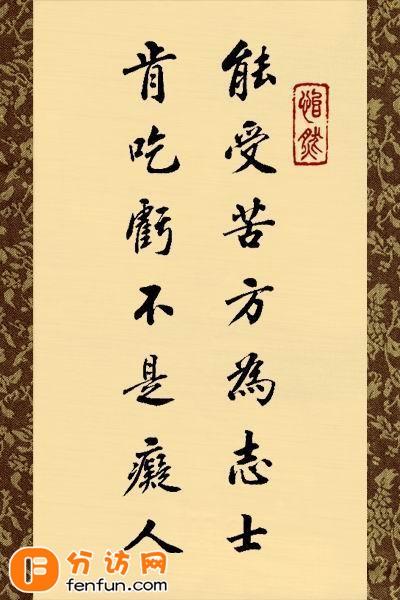 能受苦方為志士
肯吃虧不是癡人
分访网
fenfun.com